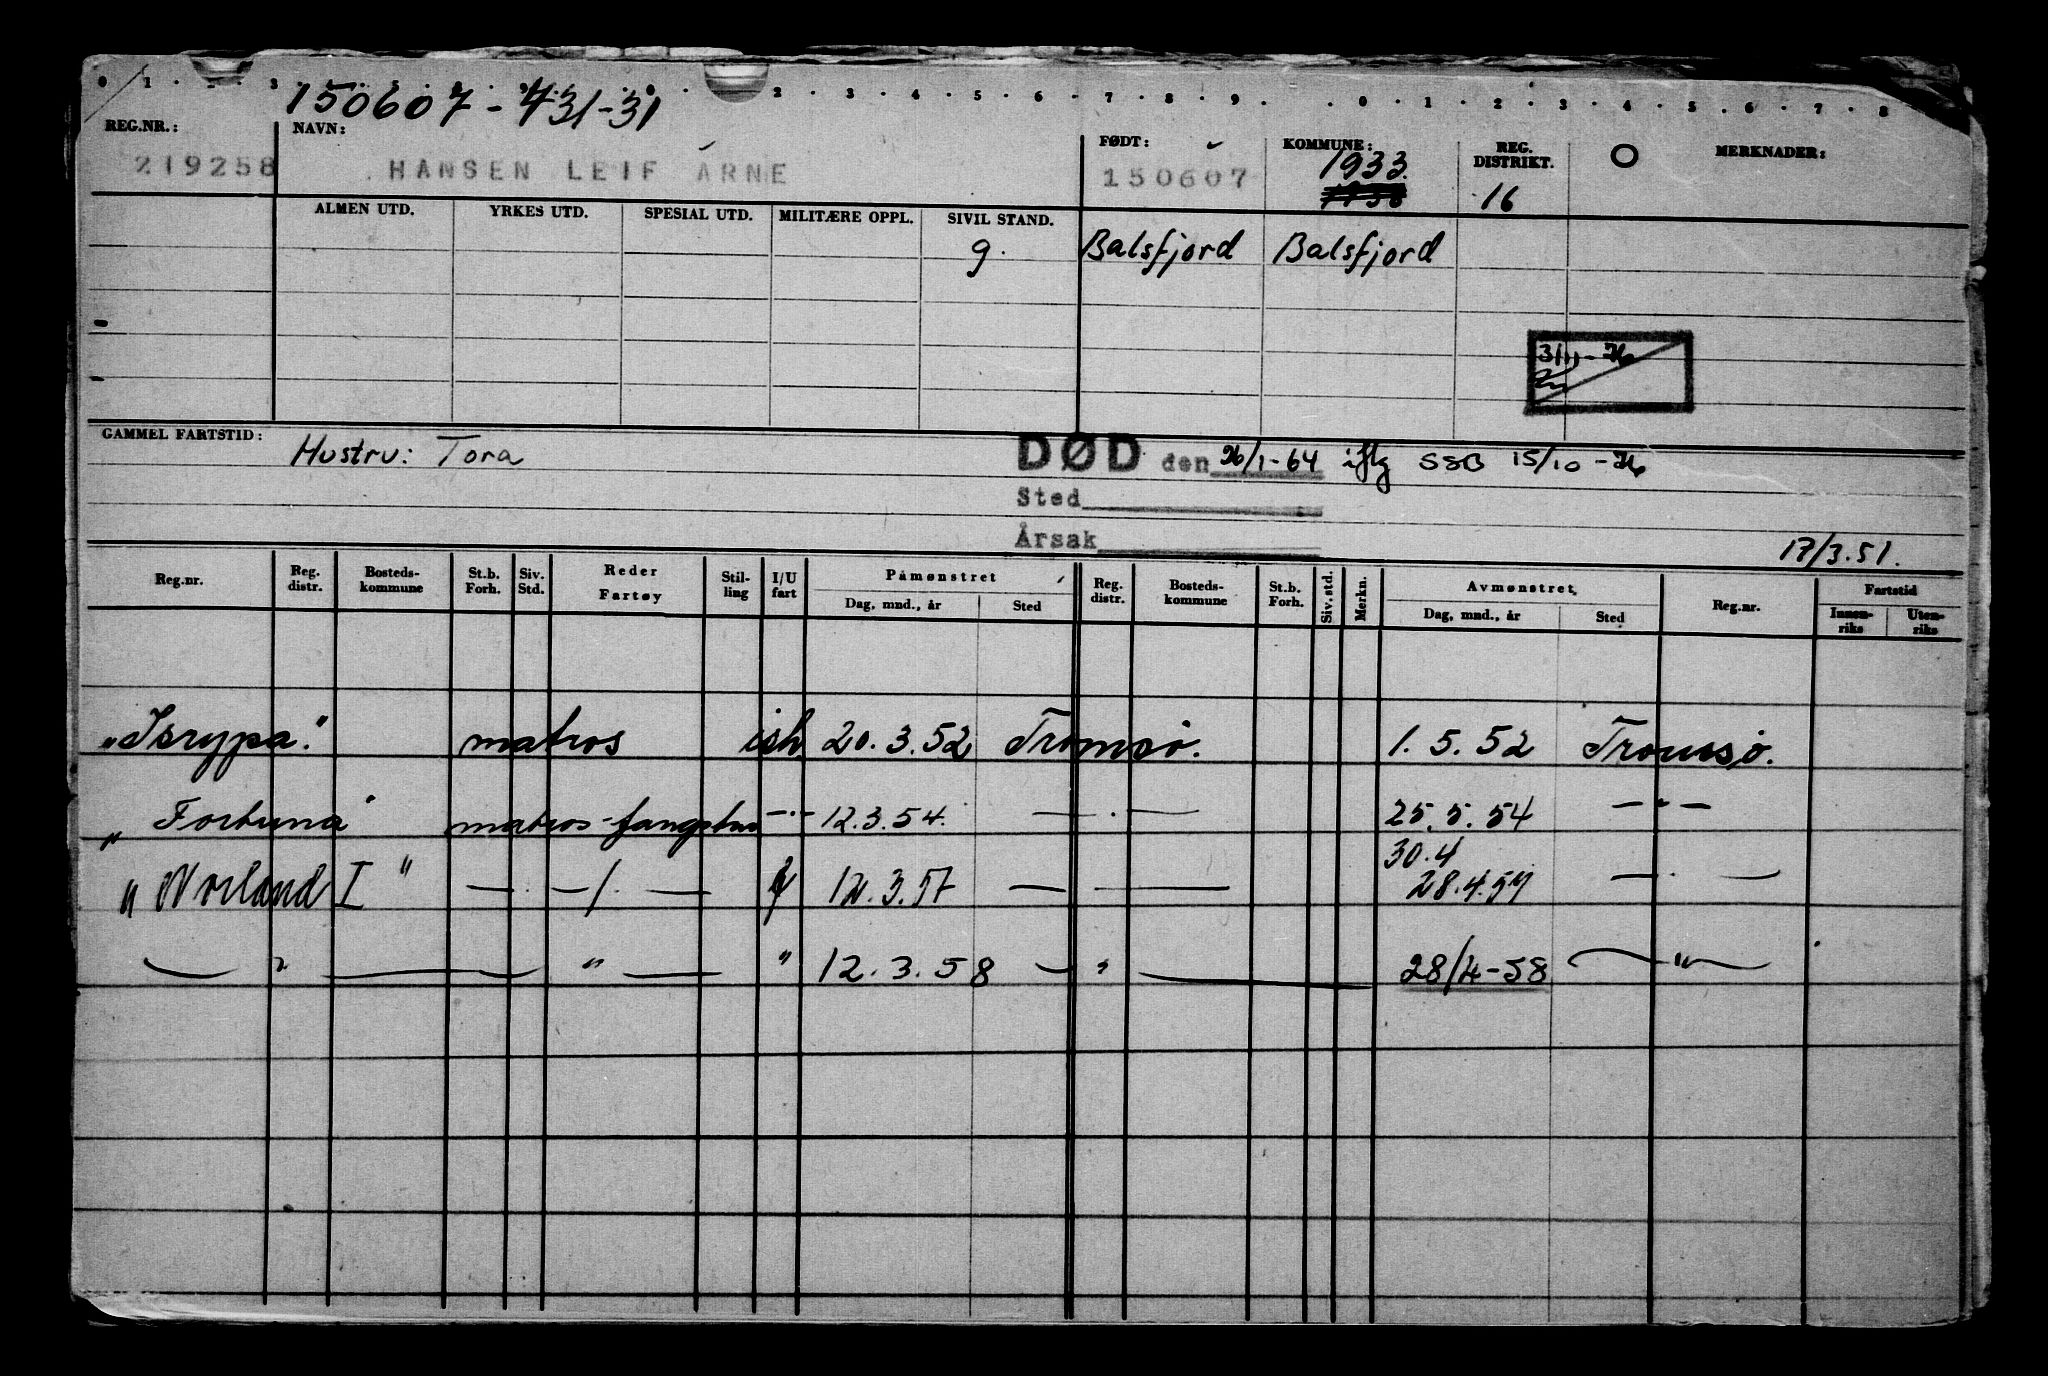 0 1 . 3 . . . 2 . 3 . 4 . 5 . 6 . 7 . 8 . 9 . . 0 . 1 . 2 . 3 . 4 . 5 . 6 . 7 . 8
150607 - 431-31
REG.NR.: NAVN: FØDT: KOMMUNE: REG. DISTRIKT. O MERKNADER:
219258 HANSEN LEIF ARNE 150607 1933. 16
ALMEN UTD. YRKES UTD. SPESIAL UTD. MILITÆRE OPPL. SIVIL STAND.
g. Balsfjord Balsfjord
3/11-76
GAMMEL FARTSTID: Hustru: Tora DØD den 26/1-64 iflg SSB 15/10-76
Sted
Årsak
17/3.51.
Reg.nr. Reg. distr. Bosteds-kommune St.b. Forh. Siv. Std. Reder Fartøy Stil-ling I/U fart Påmønstret Reg. distr. Bosteds-kommune St.b. Forh. Siv. std. Merkn. Avmønstret Reg.nr. Fartstid
Dag, mnd., år Sted Dag, mnd., år Sted Innen-riks Uten-riks
"Isrypa." matros ish 20.3.52 Tromsø. 1.5.52 Tromsø.
"Fortuna" matros-fangstm —·— 12.3.54. — · — 25.5.54 — " —
30.4
"Norland I" — · — / · — 12.3.57 — — 28.4.57 — · —
— " — " — " 12.3.58 — " — 28/4-58 — " —